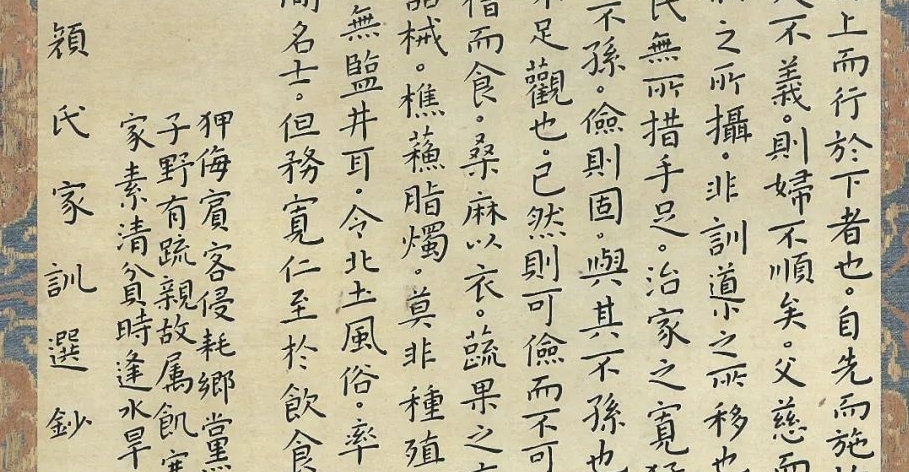 上而行於下者也。自先而施
不義。則婦不順矣。父慈而
之所攝。非訓導之所移也
民無所措手足。治家之寬猛
不孫。儉則固。與其不孫也
足觀也。已然則可儉而不可
而食。桑麻以衣。蔬果之
械。樵蘓脂燭。莫非種殖
無鹽井耳。令北土風俗。率
名士。但務寬仁至於飲食
狎侮賓客侵耗鄉黨
子野有疏親故属飢寒
家素清貧時逢水旱
顏氏家訓選鈔